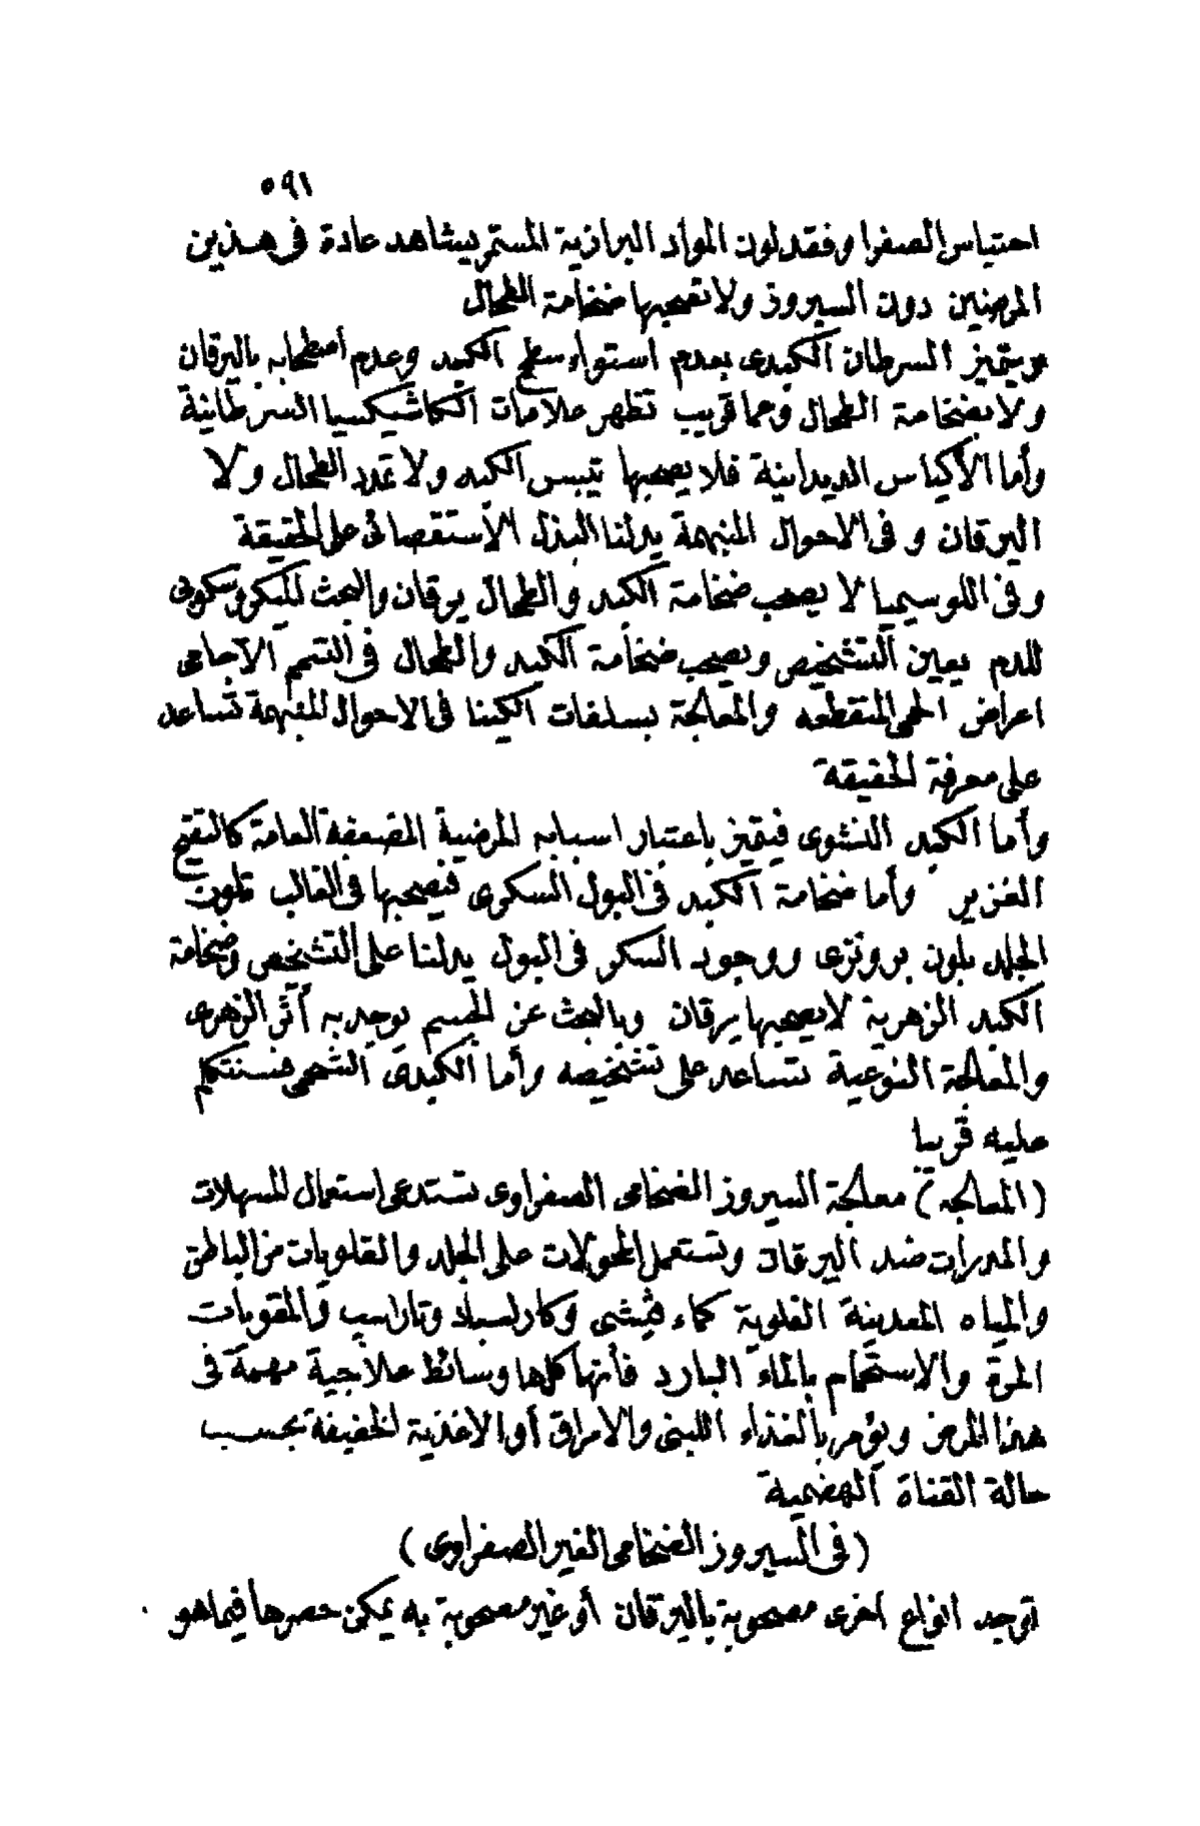 ٥٩١
احتباس الصفرا وفقد لون المواد البرازية المستمر يشاهد عادة فى هـذين
المرضين دون السيروز ولا تصحبها ضخامة الطحال
ويتميز السرطان الكبدى بعدم استواء سطح الكبد وعدم اصطحابه باليرقان
ولا بضخامة الطحال وعما قريب تظهر علامات الكاشيكسيا السرطانية
وأما الأكياس الديدانية فلا يصحبها تيبس الكبد ولا تمدد الطحال ولا
اليرقان و فى الاحوال المنبهمة يدلنا البذل الاستقصائى على الحقيقة
وفى اللوسيميا لا يصحب ضخامة الكبد والطحال يرقان والبحث الميكروسكوبى
للدم يعين التشخيص ويصحب ضخامة الكبد والطحال فى التسمم الآجامى
اعراض الحمى المتقطعه والمعالجة بسلفات الكينا فى الاحوال المنبهمة تساعد
على معرفة الحقيقة
وأما الكبد النشوى فيتميز باعتبار اسبابه المرضية المضعفة العامة كالتقيح
الغزير وأما ضخامة الكبد فى البول السكرى فيصحبها فى الغالب تلون
الجلد بلون برونزى ووجود السكر فى البول يدلنا على التشخيص وضخامة
الكبد الزهرية لا يصحبها يرقان وبالبحث عن الجسم يوجد به أثر الزهرى
والمعالجة النوعية تساعد على تشخيصه وأما الكبدى الشحمى فسنتكلم
عليه قريبا
(المعالجه) معالجة السيروز الضخامى الصفراوى تستدعى استعمال المسهلات
والمدرات ضد اليرقان وتستعمل المحولات على الجلد والقلويات من الباطن
والمياه المعدنية القلوية كماء فيشى وكارلسباد وتاراسب والمقويات
المرة والاستحمام بالماء البارد فأنها كلها وسائط علاجية مهمة فى
هذا المرض ويؤمر بالغذاء اللبنى والامراق أو الاغذية الخفيفة بحسـب
حالة القناة الهضمية
(فى السيروز الضخامى الغير الصفراوى)
توجد انواع اخرى مصحوبة باليرقان أو غير مصحوبة به يمكن حصرها فيما هو